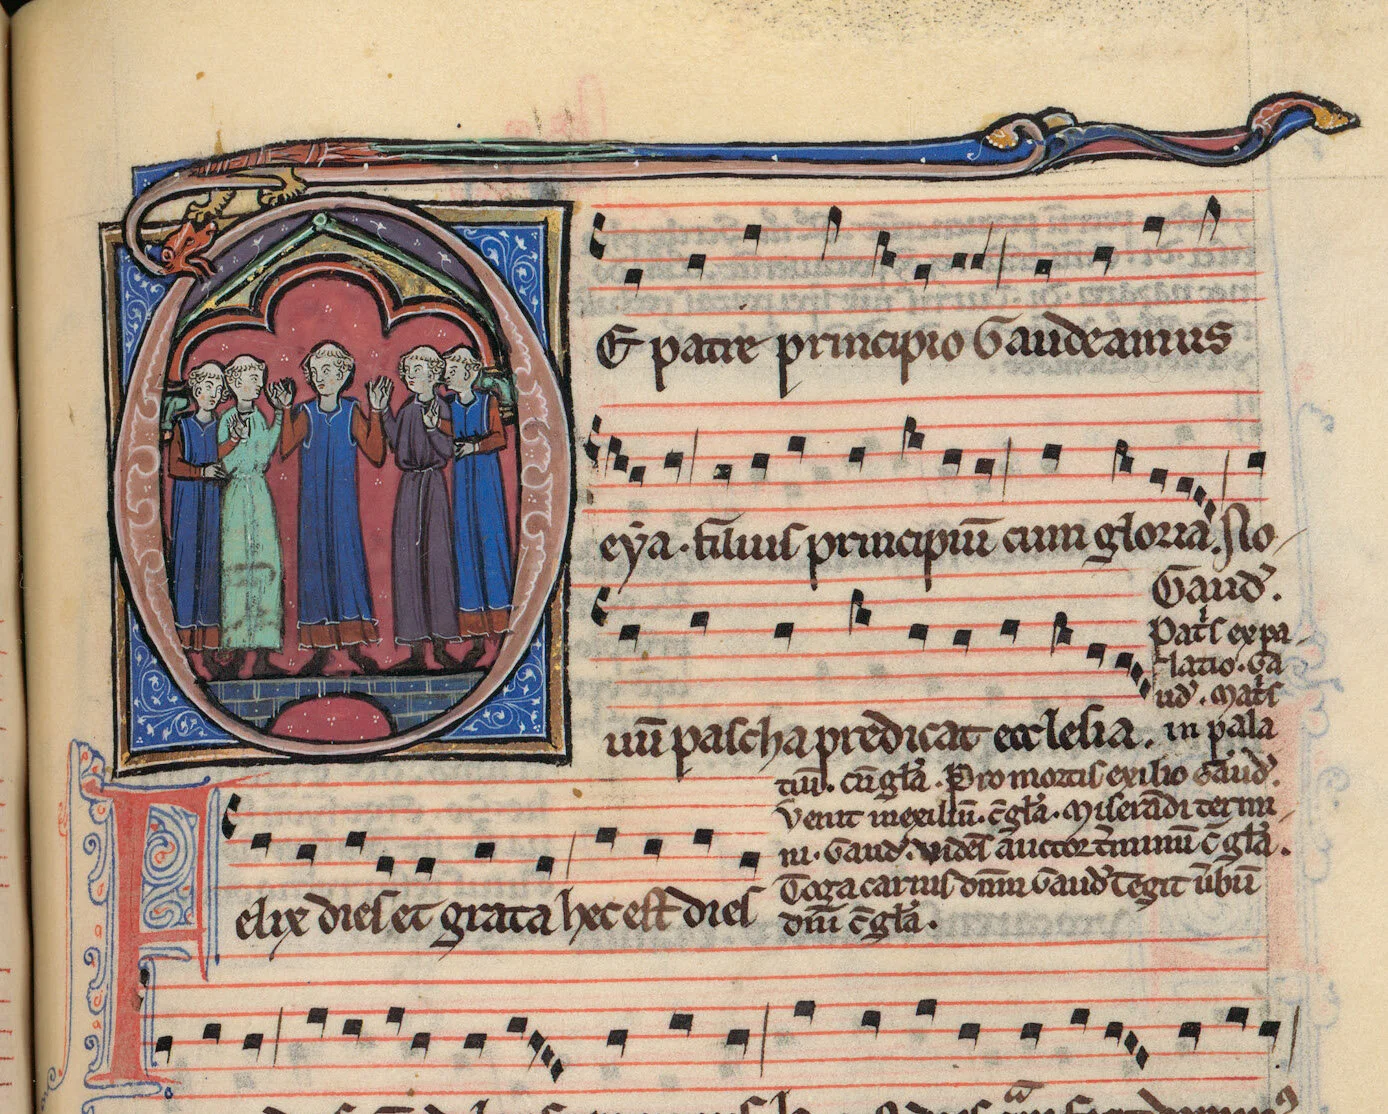 E patre principio Gaudeamus
eya. filius principiū cum gloria. No
Gaud̛.
Pat̾s ex pa
latio. Ga
ud̛. mat̾s
uū pascha predicat ecclesia. in pala
tiū. cū gl̄a. Pro mortis exilio Gaud̛.
Venit in exiliū. c̄ gl̄a. Miserādi termi
ni. Gaud̛. auctor t̾minū c̄ gl̄a.
Toga carnis Gaud̛ tegit
c̄ gl̄a.
Felix dies et grata hec est dies